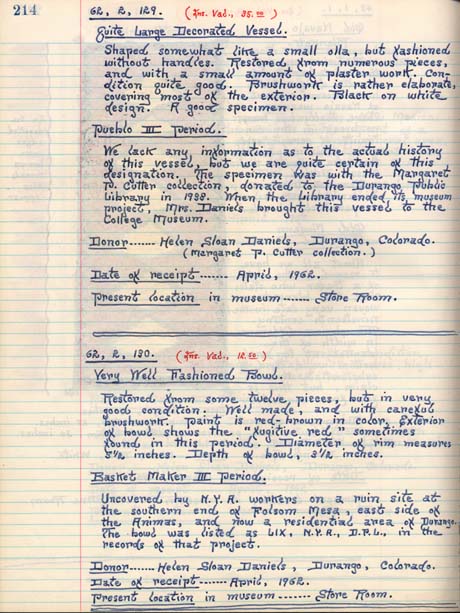 214
62, 2, 129. (Ins. Val., 35.00)
Quite Large Decorated Vessel.
Shaped somewhat like a small olla, but fashioned
without handles. Restored from numerous pieces,
and with a small amount of plaster work. Con-
dition quite good. Brushwork is rather elaborate,
covering most of the exterior. Black on white
design. A good specimen.
Pueblo III Period.
We lack any information as to the actual history
of this vessel, but we are quite certain of this
designation. The specimen was with the Margaret
P. Cutter collection, donated to the Durango Public
Library in 1938. When the Library ended its museum
project, Mrs. Daniels brought this vessel to the
College Museum.
Donor....... Helen Sloan Daniels, Durango, Colorado.
(Margaret P. Cutter collection.)
Date of receipt ------ April, 1962.
Present location in museum ------ Store Room.
62, 2, 130. (Ins. Val., 12.50)
Very Well Fashioned Bowl.
Restored from some twelve pieces, but in very
good condition. Well made, and with careful
brushwork. Paint is red-brown in color. Exterior
of bowl shows the "fugitive red" sometimes
found in this period. Diameter of rim measures
inches. Depth of bowl, 3½ inches.
Basket Maker III Period.
Uncovered by N.Y.A. workers on a ruin site at
the southern end of Folsom Mesa, east side of
the Animas, and now a residential area of Durango.
The bowl was listed as LIX, N.Y.A., D.P.L., in the
records of that project.
Donor....... Helen Sloan Daniels, Durango, Colorado.
Date of receipt ------ April, 1962.
Present location in museum ------ Store Room.